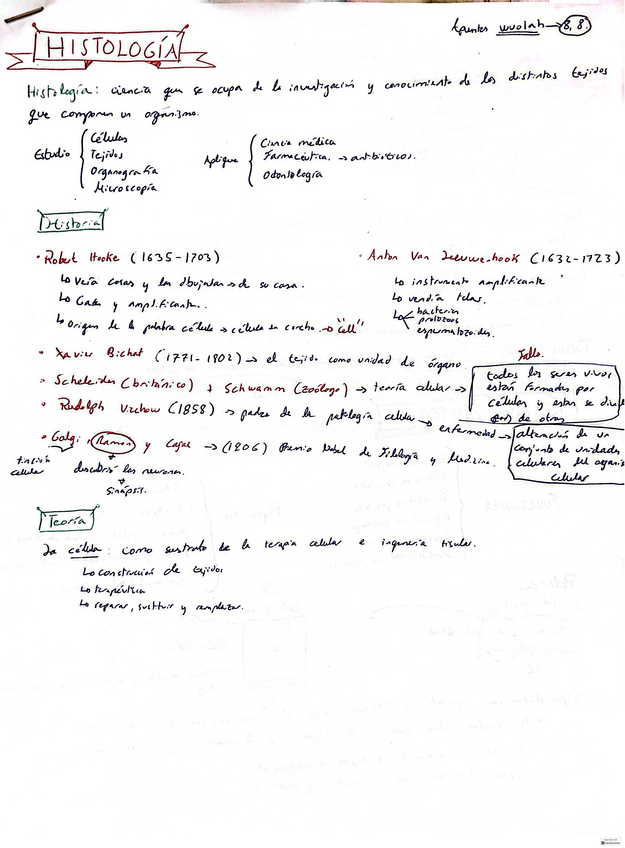 Apuntes wuolah → 8,8.
HISTOLOGÍA
Histología: ciencia que se ocupa de la investigación y conocimiento de los distintos tejidos
que componen un organismo.
Estudio
Células
Tejidos
Organografía
Microscopía.
Aplique
Ciencia médica
Farmacéutica. → antibióticos.
Odontología
Historia
• Robert Hooke (1635-1703)
↳ Veía cosas y las dibujaba → de su casa.
↳ Gafas y amplificante.
↳ Origen de la palabra célula → célula en corcho. → "Cell"
• Anton Van Leeuwenhook (1632-1723)
↳ instrumento amplificante
↳ vendía telas.
↳ bacterias
protozoos
espermatozoides.
• Xavier Bichat (1771-1902) → el tejido como unidad de órgano.
• Scheleider (británico) y Schwamm (Zoólogo) → teoría celular →
todos los seres vivos
están formados por
células y estas se divid
de otras
• Rudolph Virchow (1858) → padre de la patología celular → enfermedad →
alteración de un
conjunto de unidades
celulares del organis
celular
• Golgi y Ramon y Cajal → (1906) Premio Nobel de Fisiología y Medicina.
tinción
celular
descubrió las neuronas.
↓
sinápsis.
Teoría
La célula: como sustrato de la terapia celular e ingeniería tisular.
↳ construcción de tejidos
↳ terapéutica
↳ reparar, sustituir y remplazar.